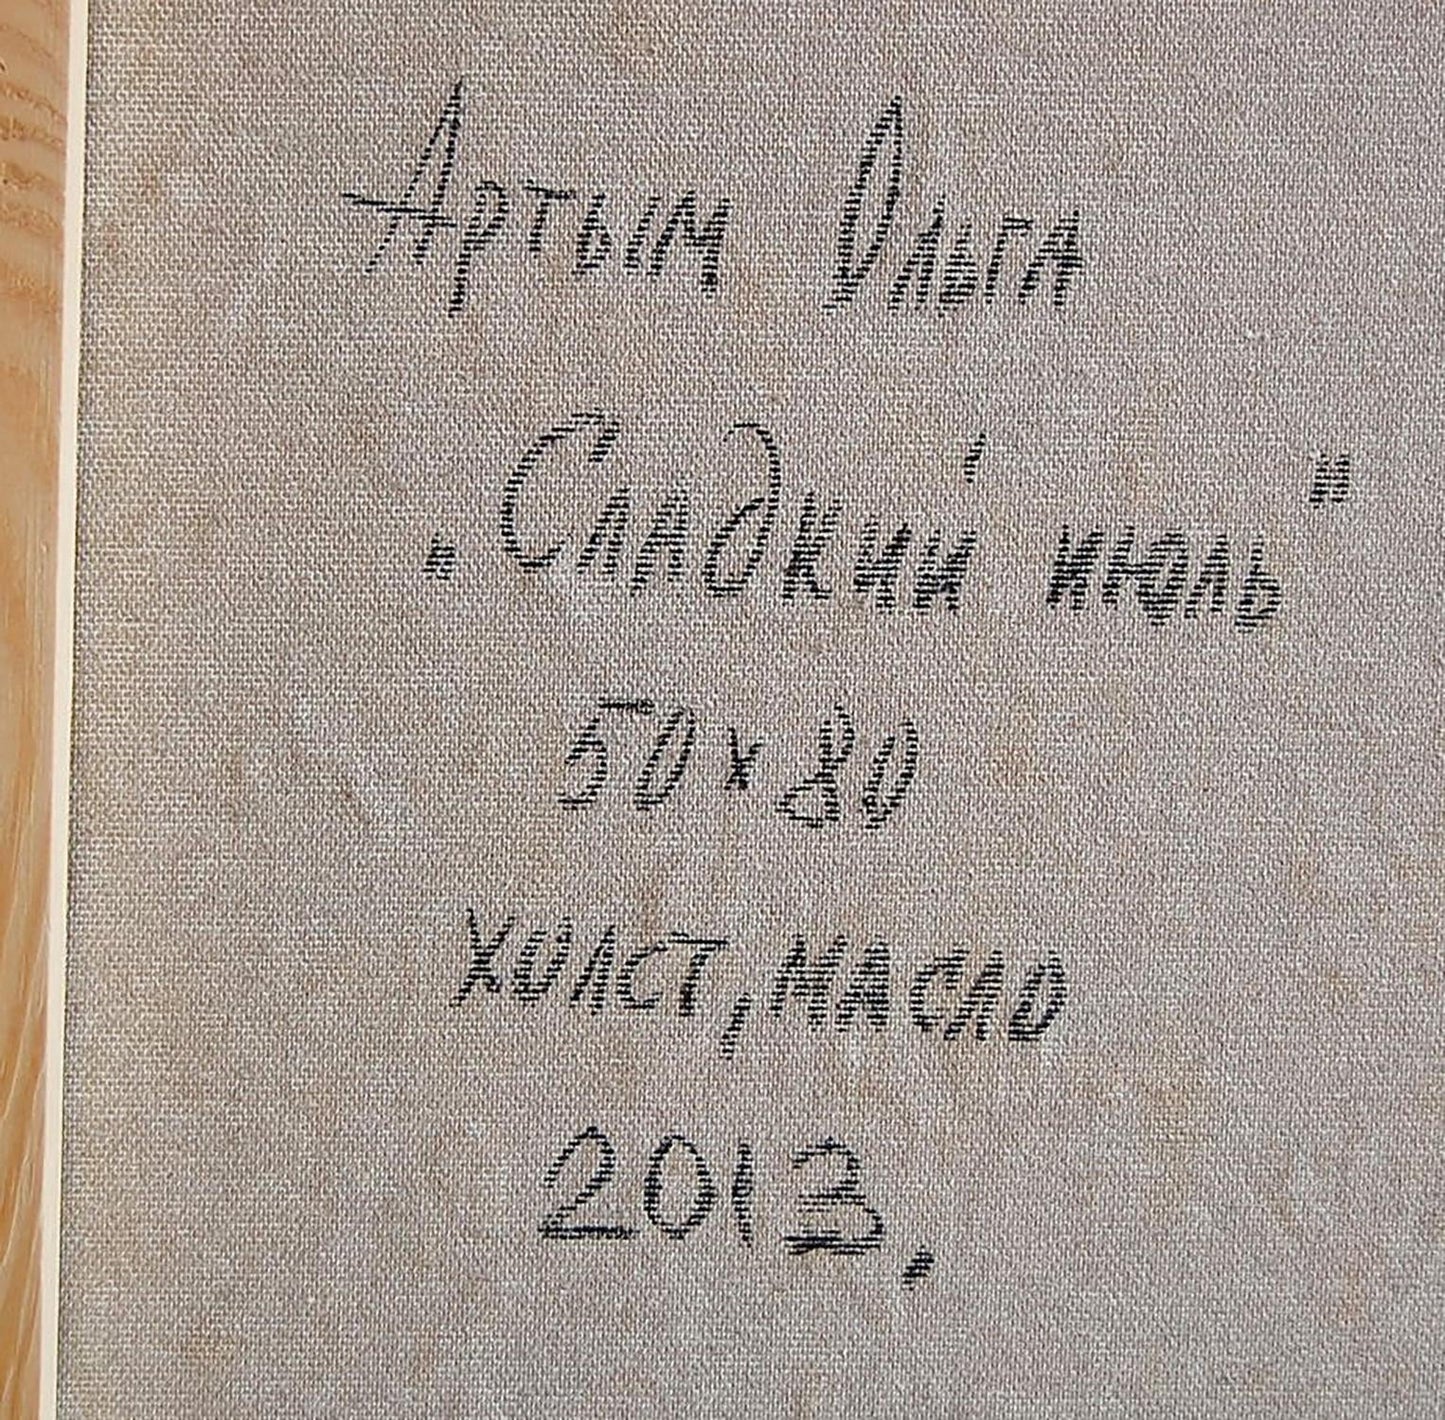 Артым Ольга
„Сладкий июль"
50x80
холст, масло
2013,